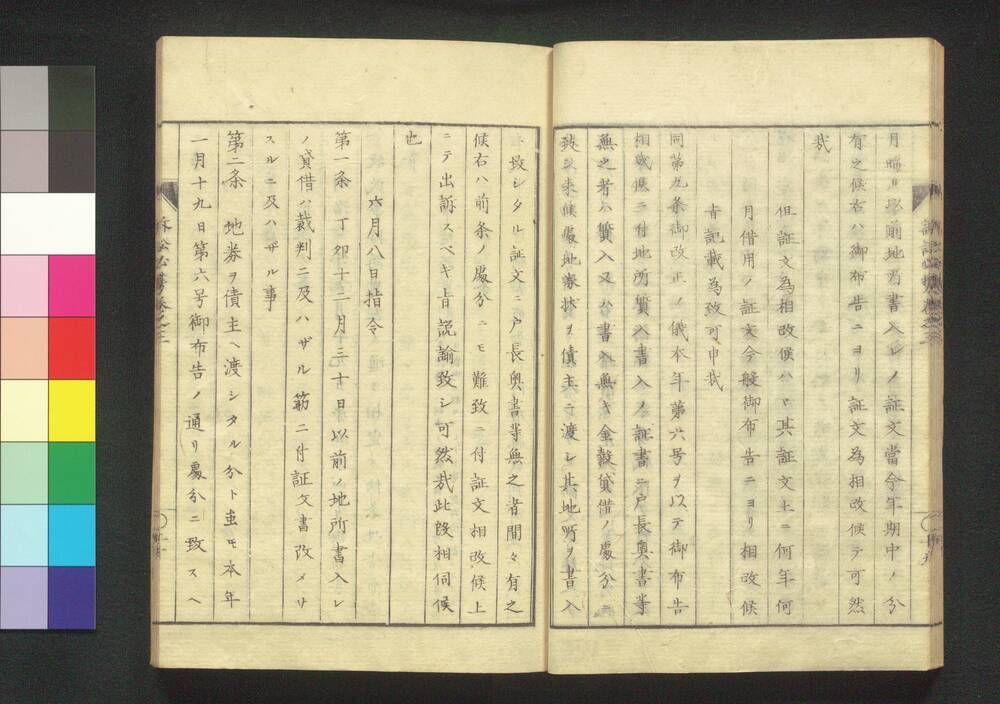 月晦日以前地所書入レノ証文當今年期中ノ分
有之候右ハ御布告ニヨリ証文為相改候テ可然
哉
但証文為相改候ハヽ其証文上ニ何年何
月借用ノ証文今般御布告ニヨリ相改候
旨記載為致可申哉
同第九条御改正ノ儀本年第六号ヲ以テ御布告
相成候ニ付地所質入書入ノ証書ニ戸長奥書等
無之者ハ質入又ハ書入無キ金穀貸借ノ處分ニ
致シ来候處地券状ヲ債主ニ渡シ其地所ヲ書入
ニ致シタル証文ニ戸長奥書等無之者間々有之
候右ハ前条ノ處分ニモ難致ニ付証文相改候上
ニテ出訴スベキ旨説諭致シ可然哉此段相伺候
也
六月八日指令
第一条 丁卯十二月三十日以前ノ地所書入レ
ノ貸借ハ裁判ニ及ハザル筋ニ付証文書改メサ
スルニ及ハザル事
第二条 地券ヲ債主ヘ渡シタル分ト虽モ本年
一月十九日第六号御布告ノ通リ處分ニ致スヘ